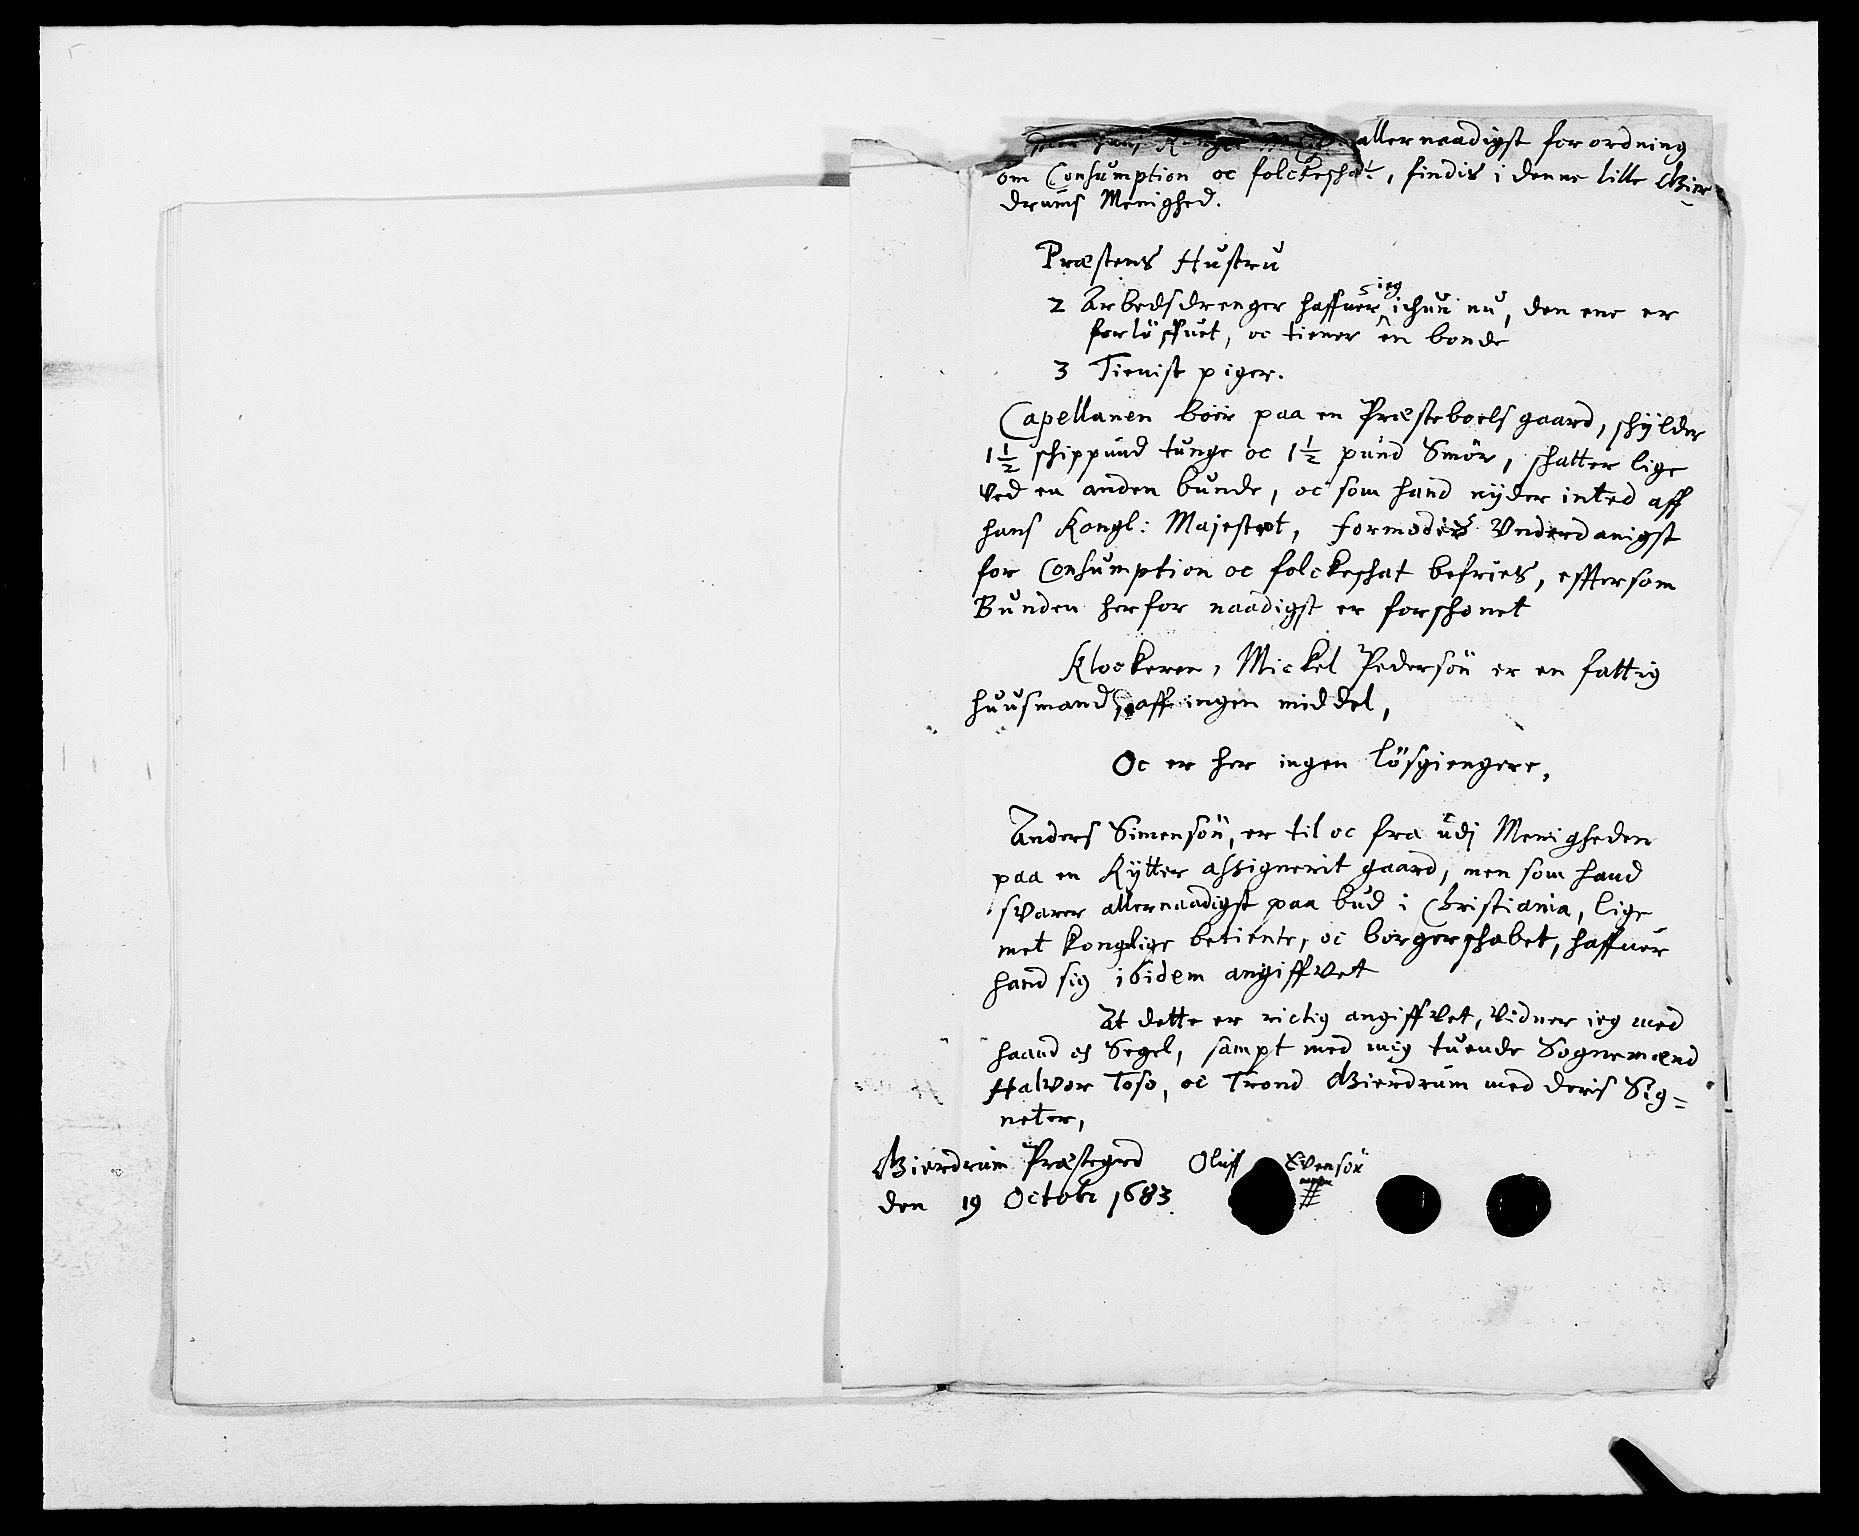 allernaadigst forordning
om Consumption oc folckeschat, findis i denne lille Bier
drums Menighed.
Præstens Hustru
2 Arbedsdrenger haffuer ieg ichun nu, den ene er
forlöffuet, oc tiener en bonde
3 Tienist piger.
Capellanen boer paa en Præsteboels gaard, schÿlder
1 1/2 schippund tunge oc 1 1/2 pund Smör, schatter lige
ved en anden bunde, oc som hand nÿder inted aff
hans Kongl: Majestæt, formodes Vnderdanigst
for Consumption oc folckeschat befries, efftersom
Bunden herfor naadigst er forschonet
Klockeren, Mickel Pedersön er en fattig
huusmand, aff ingen middel,
Oc er her ingen lösgiengere,
Anders Simensön, er til oc fra udj Menigheden
paa en Rÿtter assignerit gaard, men som hand
svarer allernaadigst paa bud i Christiania, lige
met konglige betiente, oc borgerschabet, haffuer
hand sig ibidem angiffvet
At dette er rictig angiffvet, Vidner ieg med
haand oc Segel, sampt med mig tuende Sognemænd
Halvor Toso, oc Trond Bierdrum med deris Sig=
neter,
Bierdrum Præstegrd Oluff Evensön
den 19 Octobr 1683